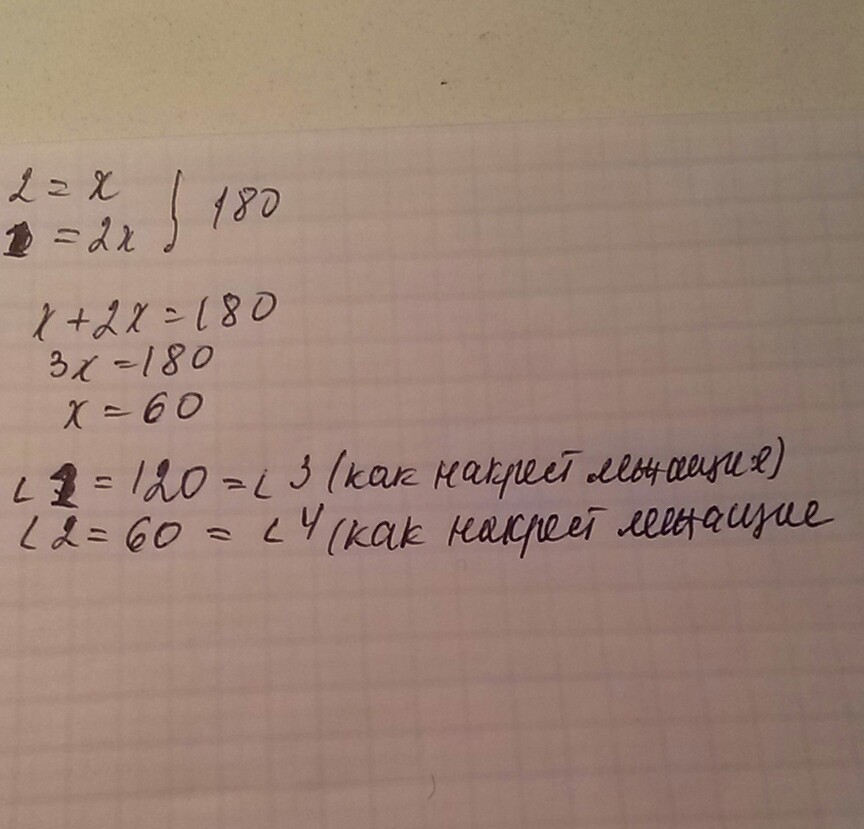 2 = x } 180
1 = 2x
x + 2x = 180
3x = 180
x = 60
∠1 = 120 = ∠3 (как накрест лежащие)
∠2 = 60 = ∠4 (как накрест лежащие